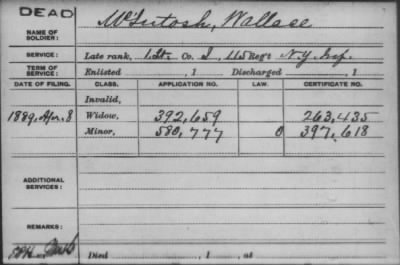 DEAD
NAME OF SOLDIER: McIntosh, Wallace
SERVICE: Late rank, 1 Lt. Co. I, 115 Reg't N.Y. Inf.
TERM OF SERVICE: Enlisted , 1 Discharged , 1
DATE OF FILING. CLASS. APPLICATION NO. LAW. CERTIFICATE NO.
Invalid,
1889, Apr. 8 Widow, 392,659 263,435
Minor, 580,777 0 397,618
ADDITIONAL SERVICES:
REMARKS:
Died , 1 , at